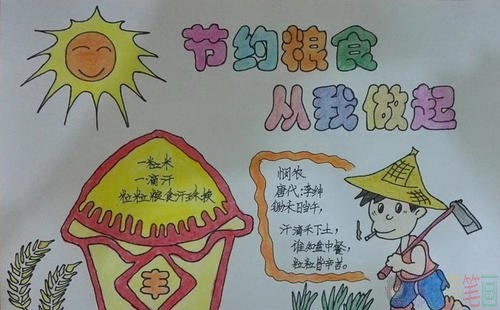 节约粮食
从我做起
一粒米
一滴汗
粒粒粮食汗珠换
丰
悯农
唐代:李绅
锄禾日当午,
汗滴禾下土,
谁知盘中餐,
粒粒皆辛苦。
笔画